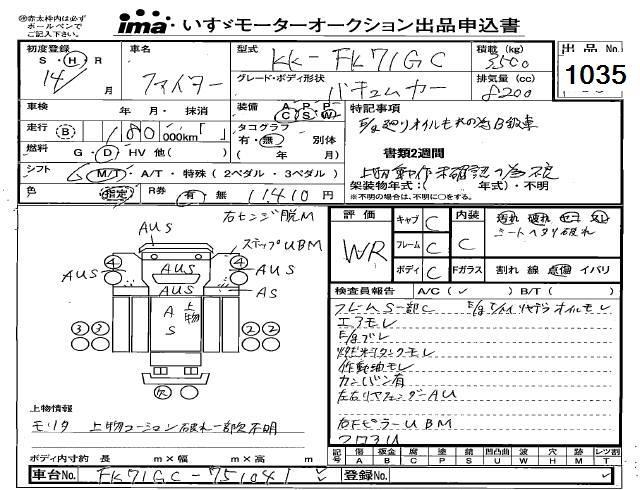 ㊟赤太枠内は必ず
ボールペンで
ご記入下さい。
ima いすゞモーターオークション出品申込書
初度登録 S・H・R 14 月
車名 ファイター
型式 KK-FK71GC
積載 (kg) 3500
出品No. 1035
グレード・ボディ形状 バキュムカー
排気量 (cc) 8200
車検 年 月・ 抹消
装備 A C P S P W
特記事項
E/g廻りオイルモれの為B級車
走行 B 180 000km「 」
タコグラフ 有・無 別体 ( 年 月)
燃料 G・D・HV 他( )
書類2週間
シフト 6 M/T・A/T・特殊(2ペダル・3ペダル)
架装物年式:( 年式)・不明
※不明の場合は、不明に○をする。
色 指定
R券 有 無 11410円
右ヒンジ脱M
AUS
ステップUBM
4 4
AUS AUS AUS
AUS AS
A S 上物
3 3 2 2
上物情報
モリタ 上物コーション破れ一部不明
ボディ内寸約 長 m×幅 m×高 m
車台No. FK71GC-751041
登録No.
評価 WR
キャブ C
フレーム C
ボディ C
内装 C
汚れ 破れ セコ スレ
シートヘタリ破れ
Fガラス 割れ 線 点傷 イバリ
検査員報告 A/C(✓) B/T( )
フレームS一部C
エアモレ
E/gブレ
燃料タンクモレ
作動油モレ
カンバン有
左右リヤフェンダーAU
右FピラーUBM
フロアU
記号 傷A 板金B 腐C 塗P 錆S 凹凸曲U 波W 穴H 跡M レツ割T